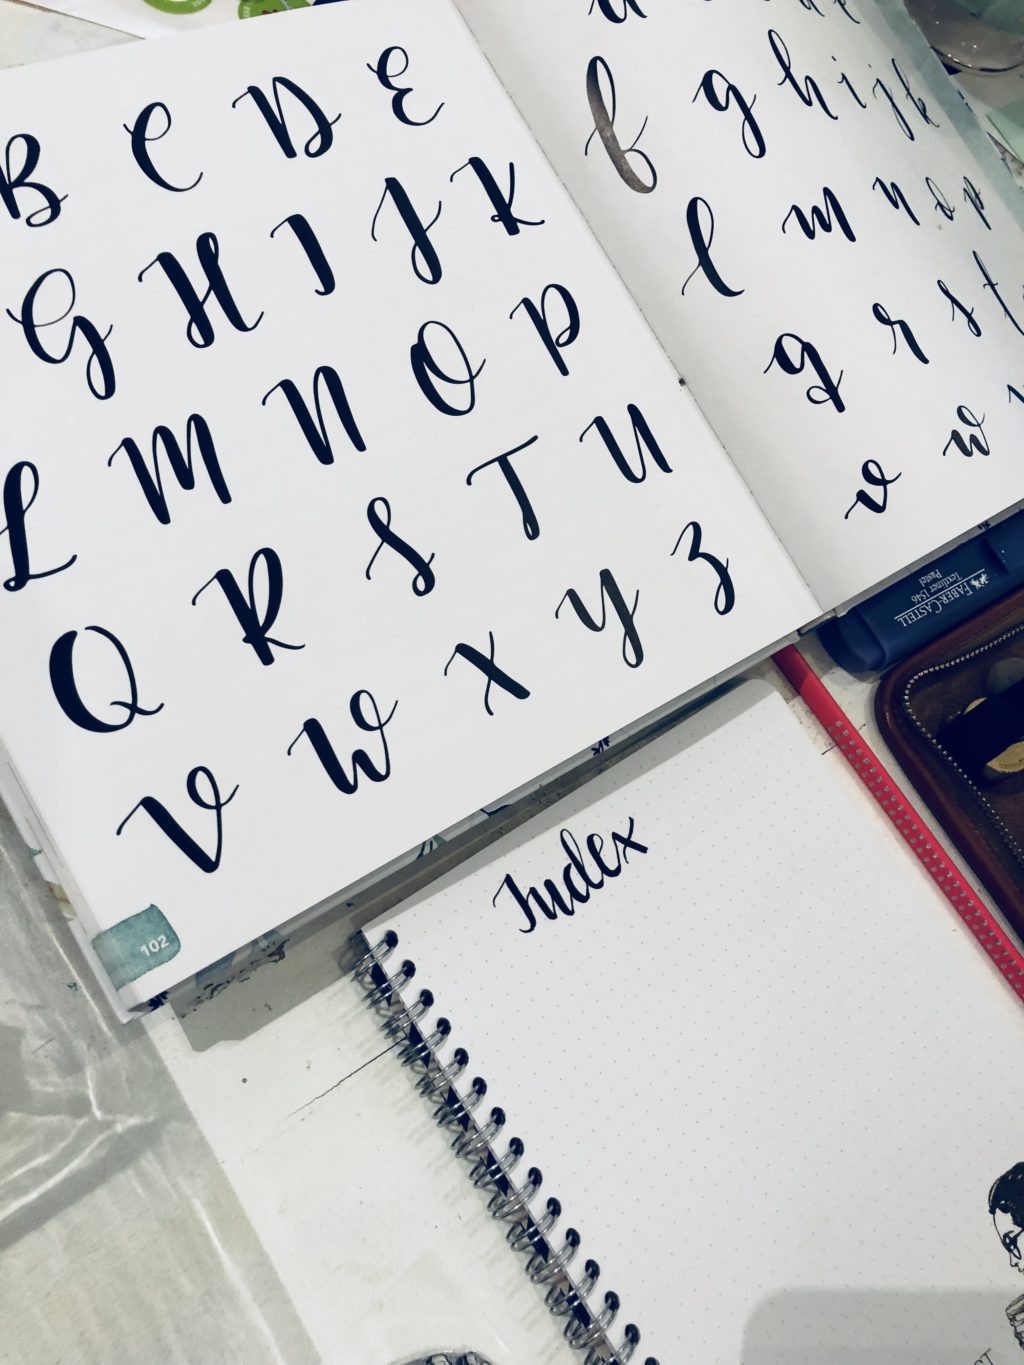 B C D E
G H I J K
L M N O P
Q R S T U
V W X Y Z
102
f g h i j k
l m n o p
q r s t
v w
FABER-CASTELL
Textliner 1546
Pastel
Index